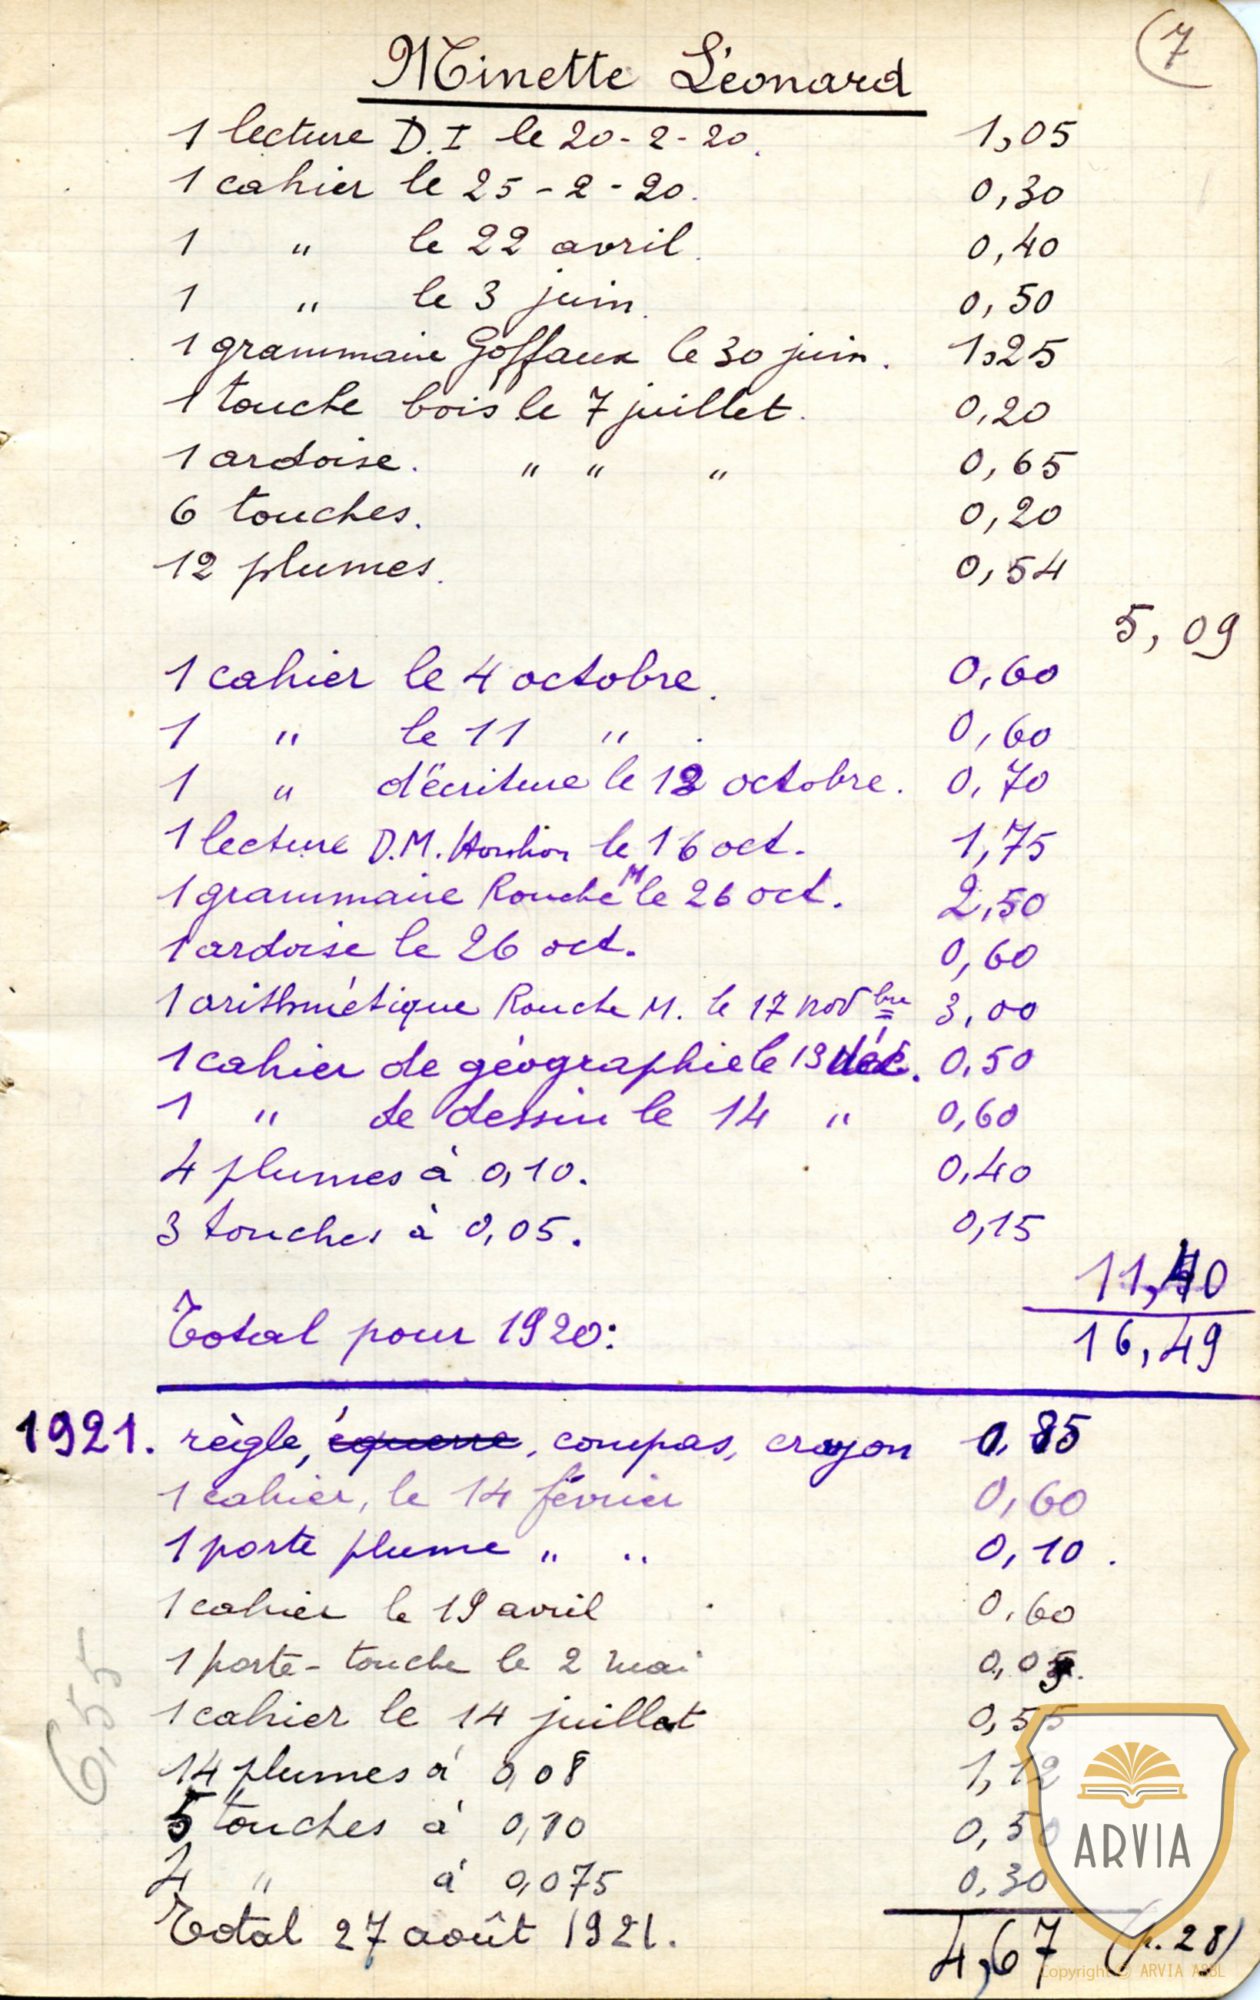 7
Minette Léonard
1 lecture D.I le 20-2-20. 1,05
1 cahier le 25-2-20. 0,30
1 " le 22 avril. 0,40
1 " le 3 juin. 0,50
1 grammaire Goffaux le 30 juin. 1,25
1 touche bois le 7 juillet. 0,20
1 ardoise. " " " 0,65
6 touches. 0,20
12 plumes. 0,54
5,09
1 cahier le 4 octobre. 0,60
1 " le 11 " . 0,60
1 " d'écriture le 12 octobre. 0,70
1 lecture D.M. le 16 oct. 1,75
1 grammaire Rouche M le 26 oct. 2,50
1 ardoise le 26 oct. 0,60
1 arithmétique Rouche M. le 17 novbre 3,00
1 cahier de géographie le 13 déc. 0,50
1 " de dessin le 14 " 0,60
4 plumes à 0,10. 0,40
3 touches à 0,05. 0,15
11,40
Total pour 1920: 16,49
1921. règle, équerre, compas, crayon 0,85
1 cahier, le 14 février 0,60
1 porte plume " " 0,10.
1 cahier le 19 avril 0,60
1 porte-touche le 2 mai 0,05.
1 cahier le 14 juillet 0,55
14 plumes à 0,08 1,12
5 touches à 0,10 0,50
4 " à 0,075 0,30
Total 27 août 1921. 4,67 (p. 28)
6,55
ARVIA
Copyright © ARVIA ASBL